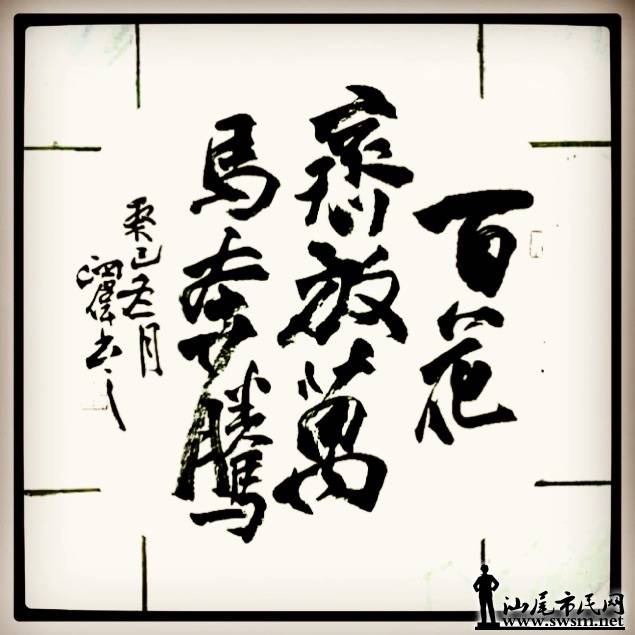 百花
齊放萬
馬奔騰
癸巳冬月
偉書之
汕尾市民网
www.swsm.net